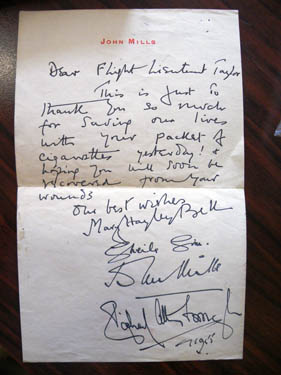 JOHN MILLS
Dear Flight Lieutenant Taylor
This is just to
thank you so much
for saving our lives
with your packet of
cigarettes yesterday! &
hoping you will soon be
recovered from your
wounds
Our best wishes
Mary Hayley Bell
Sheila Sim.
John Mills
Richard Attenborough